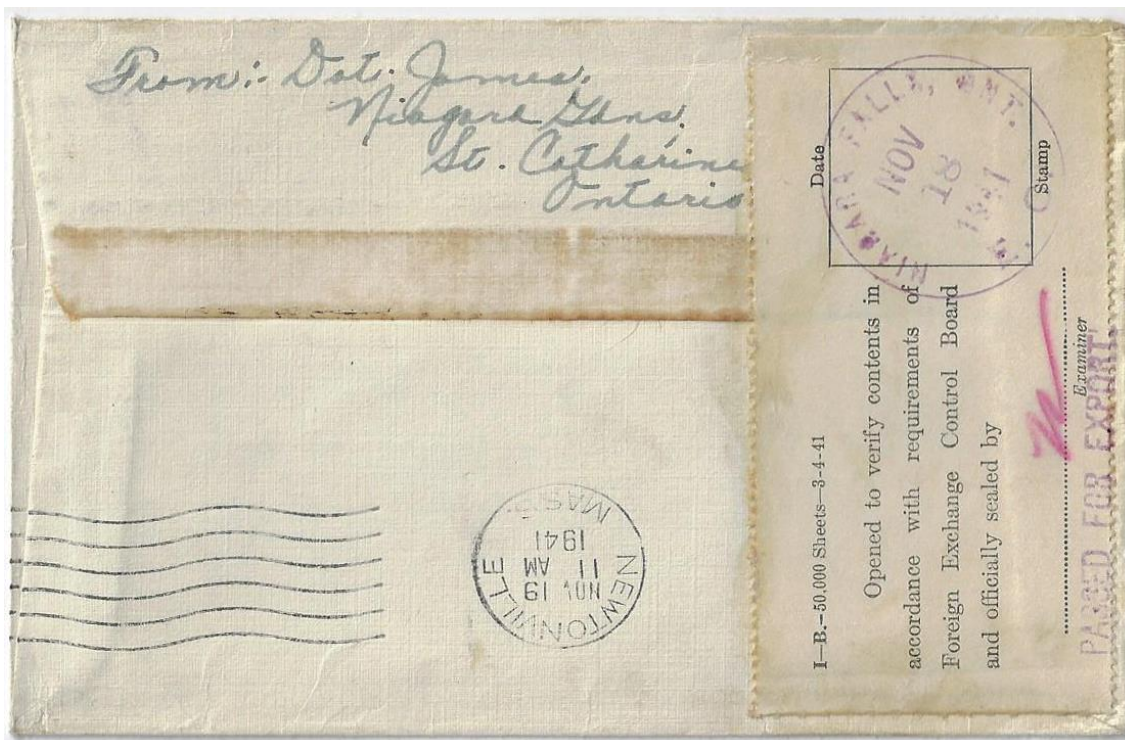 From: Dot. James.
Niagara Gdns.
St. Catharine
Ontario
NEWTONVILLE
MASS.
NOV 19
11 AM
1941
I—B.—50,000 Sheets—3-4-41
Opened to verify contents in
accordance with requirements of
Foreign Exchange Control Board
and officially sealed by
Date
Stamp
NIAGARA FALLS, ONT.
NOV
18
1941
Examiner
PASSED FOR EXPORT